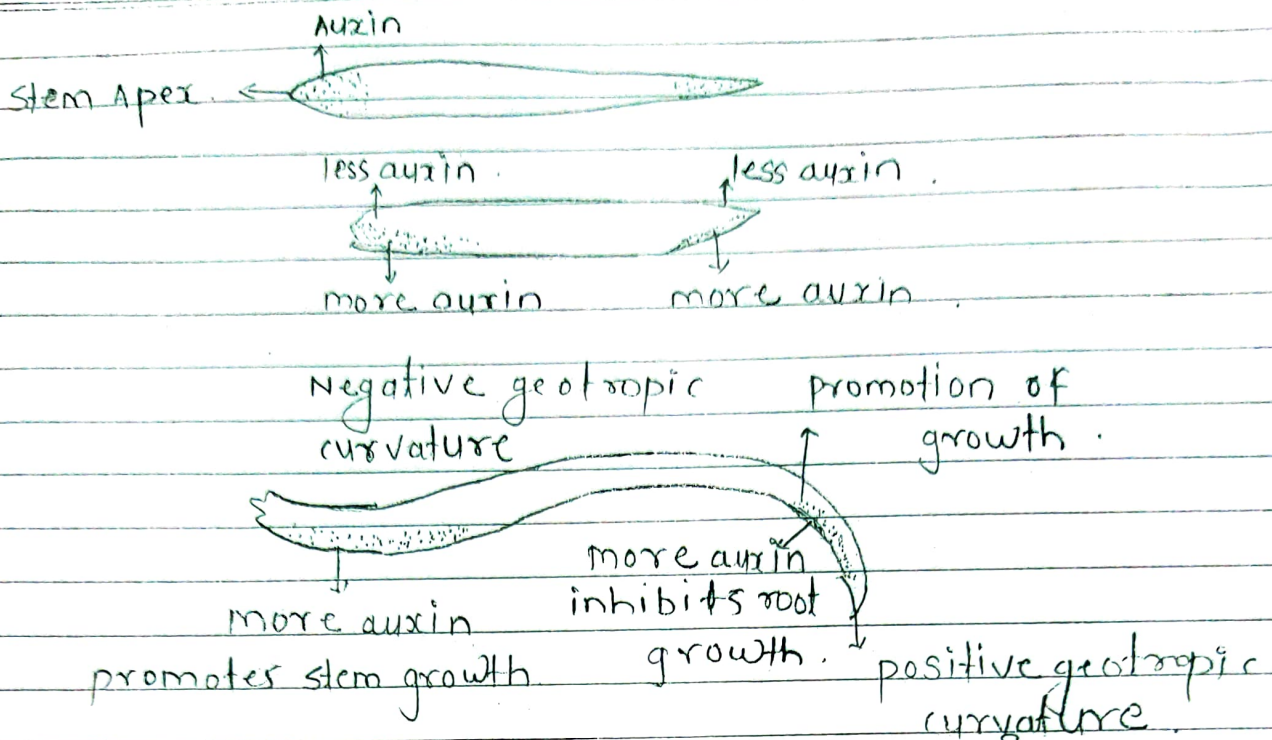 Auxin
Stem Apex.
less auxin.
less auxin.
more auxin
more auxin.
Negative geotropic
curvature
promotion of
growth.
more auxin
inhibits root
growth.
more auxin
promotes stem growth
positive geotropic
curvature.